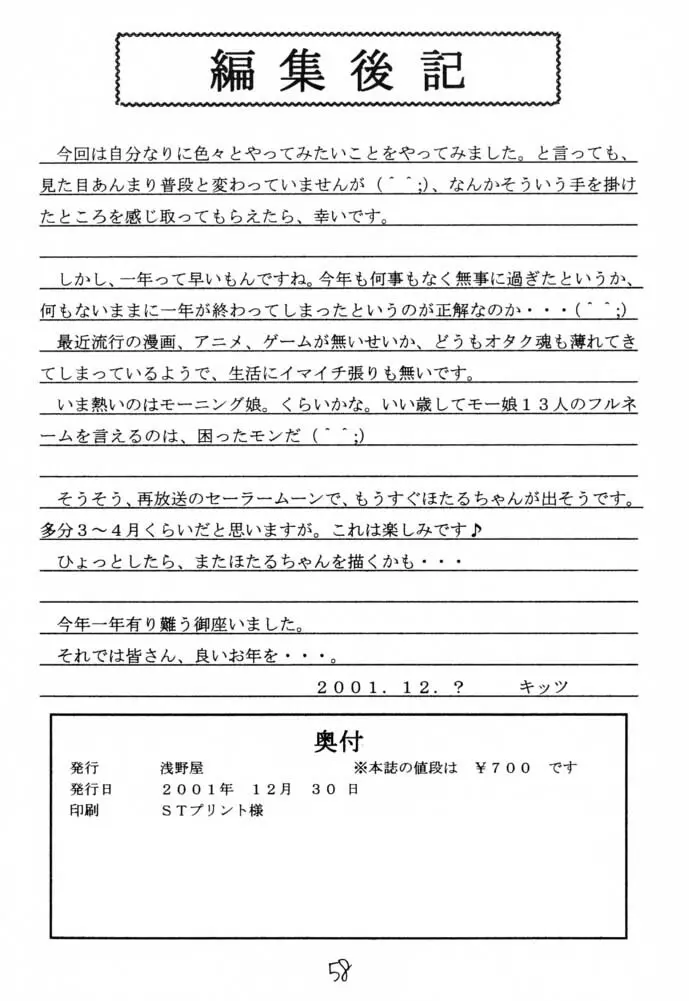 編集後記
今回は自分なりに色々とやってみたいことをやってみました。と言っても、
見た目あんまり普段と変わっていませんが（＾＾;）、なんかそういう手を掛け
たところを感じ取ってもらえたら、幸いです。
しかし、一年って早いもんですね。今年も何事もなく無事に過ぎたというか、
何もないままに一年が終わってしまったというのが正解なのか・・・（＾＾;）
最近流行の漫画、アニメ、ゲームが無いせいか、どうもオタク魂も薄れてき
てしまっているようで、生活にイマイチ張りも無いです。
いま熱いのはモーニング娘。くらいかな。いい歳してモー娘１３人のフルネ
ームを言えるのは、困ったモンだ（＾＾;）
そうそう、再放送のセーラームーンで、もうすぐほたるちゃんが出そうです。
多分３〜４月くらいだと思いますが。これは楽しみです♪
ひょっとしたら、またほたるちゃんを描くかも・・・
今年一年有り難う御座いました。
それでは皆さん、良いお年を・・・。
２００１．１２．？　　キッツ
奥付
発行　浅野屋　※本誌の値段は　￥７００　です
発行日　２００１年　１２月　３０日
印刷　ＳＴプリント様
58